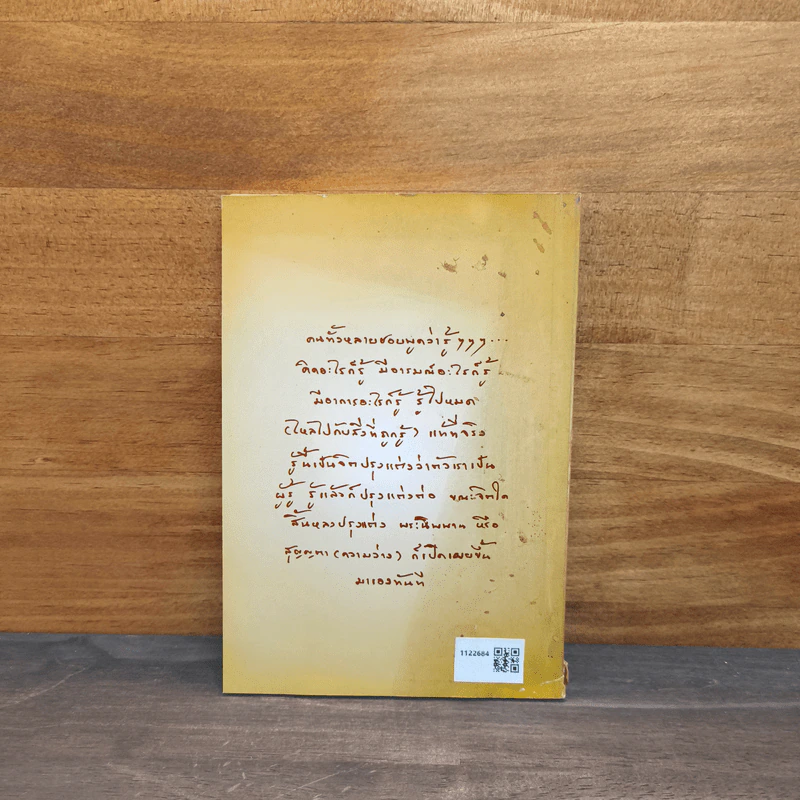 คนทั้งหลายชอบพูดว่ารู้ ๆๆๆ...
คิดอะไรก็รู้ มีอารมณ์อะไรก็รู้
มีอาการอะไรก็รู้ รู้ไปหมด
(ไหลไปกับสิ่งที่ถูกรู้) แท้ที่จริง
รู้นี้เป็นจิตปรุงแต่งว่าตัวเราเป็น
ผู้รู้ รู้แล้วก็ปรุงแต่งต่อ ขณะจิตใด
สิ้นหลงปรุงแต่ง พระนิพพาน หรือ
สุญญตา (ความว่าง) ก็เปิดเผยขึ้น
มาเองทันที
1122684